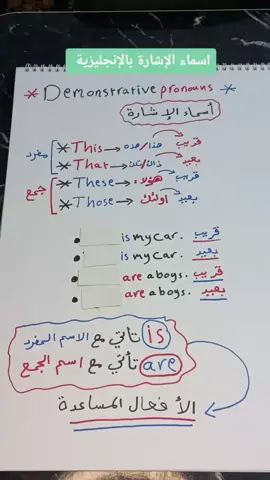 أسماء الإشارة بالإنجليزية
* Demonstrative pronouns *
أسماء الإشارة
مفرد
* This → هذا/هذه قريب
* That → ذاك/تلك بعيد
جمع
* These → هؤلاء قريب
* Those → اولئك بعيد
is my car. قريب
is my car. بعيد
are a boys. قريب
are a boys. بعيد
is تأتي مع الاسم المفرد
are تأتي مع اسم الجمع
الأفعال المساعدة